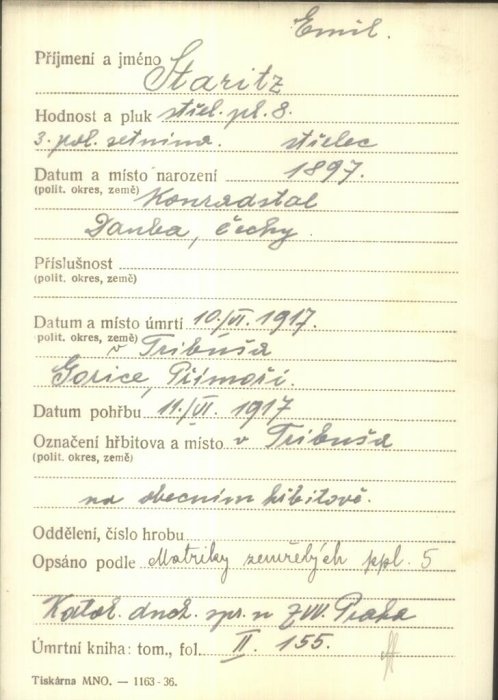 Emil.
Příjmení a jméno Staritz
Hodnost a pluk střel. pl. 8.
3. pol. setnina. střelec
Datum a místo narození 1897.
(polit. okres, země) Konradstal
Dauba, Čechy.
Příslušnost
(polit. okres, země)
Datum a místo úmrtí 10./VI. 1917.
(polit. okres, země) v Tribuša
Gorice, Přímoří.
Datum pohřbu 11./VI. 1917
Označení hřbitova a místo v Tribuša
(polit. okres, země)
na obecním hřbitově.
Oddělení, číslo hrobu
Opsáno podle Matriky zemřelých ppl. 5
Katol. duch. spr. n ZVV. Praha
Úmrtní kniha: tom., fol. II. 155.
Tiskárna MNO. — 1163-36.